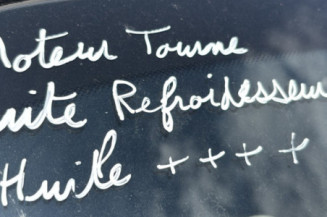 Moteur Tourne
uite Refroidesseur
Huile ++++